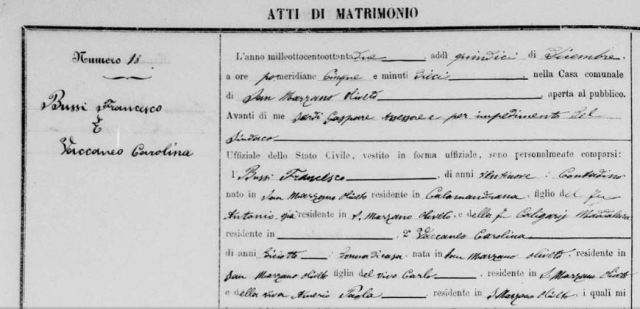 ATTI DI MATRIMONIO
Numero 18
Bussi Francesco
E
Vaccaneo Carolina
L'anno milleottocentoottantatre addì quindici di Dicembre
a ore pomeridiane Cinque e minuti dieci nella Casa comunale
di San Marzano Oliveto aperta al pubblico.
Avanti di me Sardi Gaspare Assessore e per impedimento del
Sindaco
Uffiziale dello Stato Civile, vestito in forma uffiziale, sono personalmente comparsi:
1° Bussi Francesco, di anni, Contadino
nato in San Marzano Oliveto residente in Calamandrana, figlio del fu
Antonio già residente in S. Marzano Oliveto e della fu Maddalena
residente in, E Vaccaneo Carolina
di anni diciotto, Donna di casa, nata in San Marzano Oliveto, residente in
San Marzano Oliveto figlia del vivo Carlo, residente in S. Marzano Oliveto
e della viva Paola residente in S. Marzano Oliveto, i quali mi